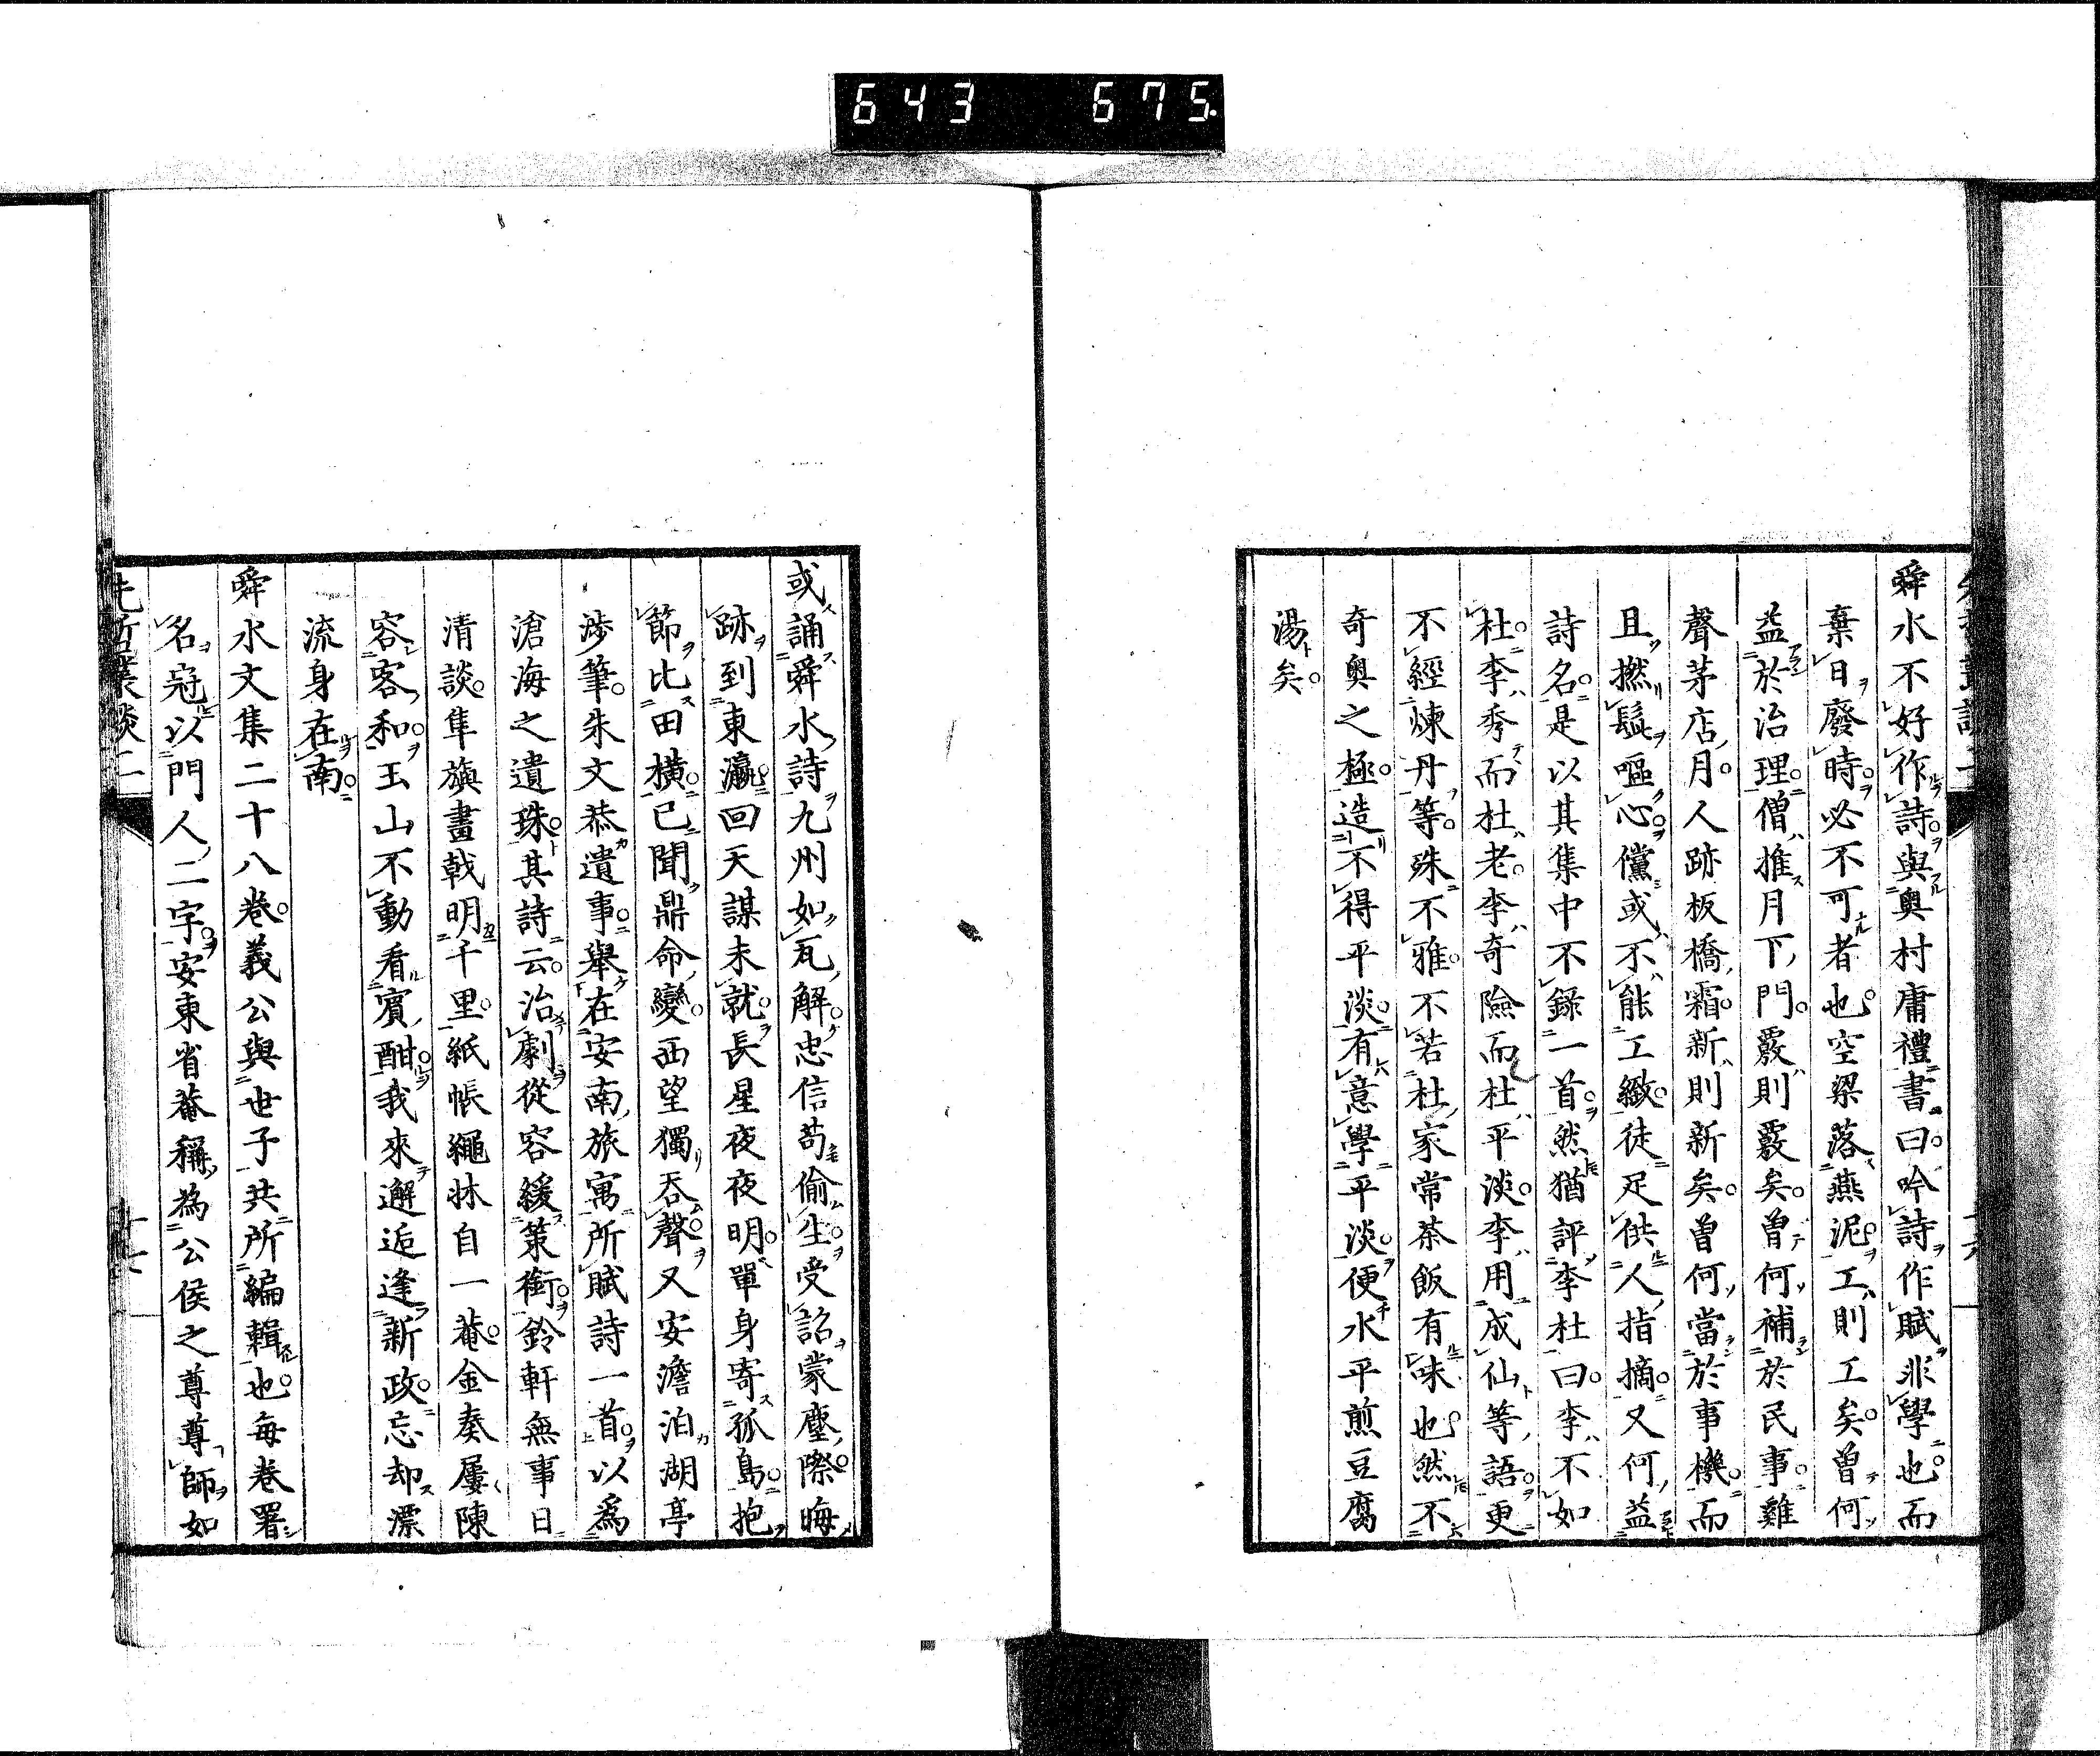 643 675
舜水不好作詩與奧村庸禮書曰吟詩作賦非學也而
棄日廢時必不可者也空梁落燕泥工則工矣曽何
益於治理僧推月下門覈則覈矣曽何補於民事雞
聲茅店月人跡板橋霜新則新矣曽何當於事機而
且撚髭嘔心儻或不能工緻徒足供人指摘又何益
詩名是以其集中不錄一首然猶評李杜曰李不如
杜李秀而杜老李奇險而杜平淡李用成仙等語更
不經煉丹等殊不雅不若杜家常茶飯有味也然不
奇奧之極造不得平淡有意學平淡便水平煎豆腐
湯矣
或誦舜水詩九州如瓦解忠信苟偷生受詔蒙塵際晦
跡到東瀛回天謀未就長星夜夜明單身寄孤島抱
節比田橫已聞鼎命變西望獨吞聲又安澹泊湖亭
渉筆朱文恭遺事舉在安南旅寓所賦詩一首以爲
滄海之遺珠其詩云治劇從容緩策銜鈴軒無事日
清談隼旟畫戟明千里紙帳繩牀自一菴金奏屢陳
容客和玉山不動看賓酣我來邂逅逢新政忘却漂
流身在南
舜水文集二十八卷義公與世子共所編輯也每卷署
名冠以門人二字安東省菴稱為公侯之尊尊師如
先哲叢談二